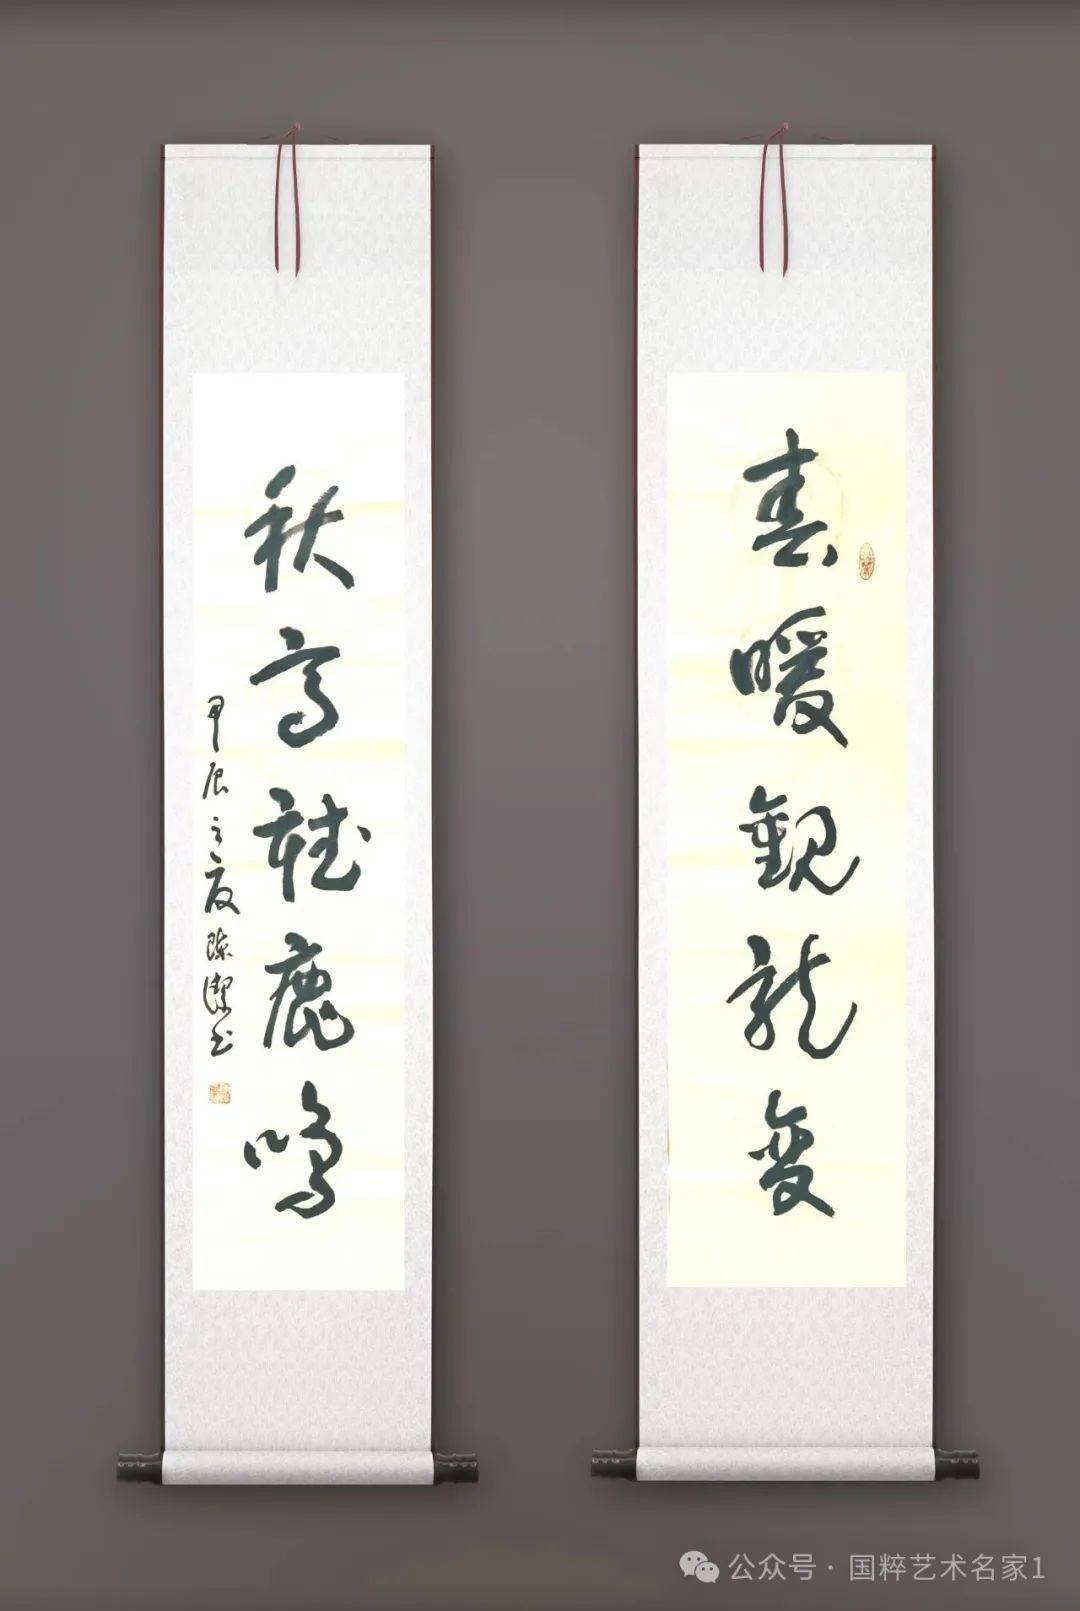 春暖觀龍變
秋高聽鹿鳴
甲辰之夏陈潔书
公众号·国粹艺术名家1